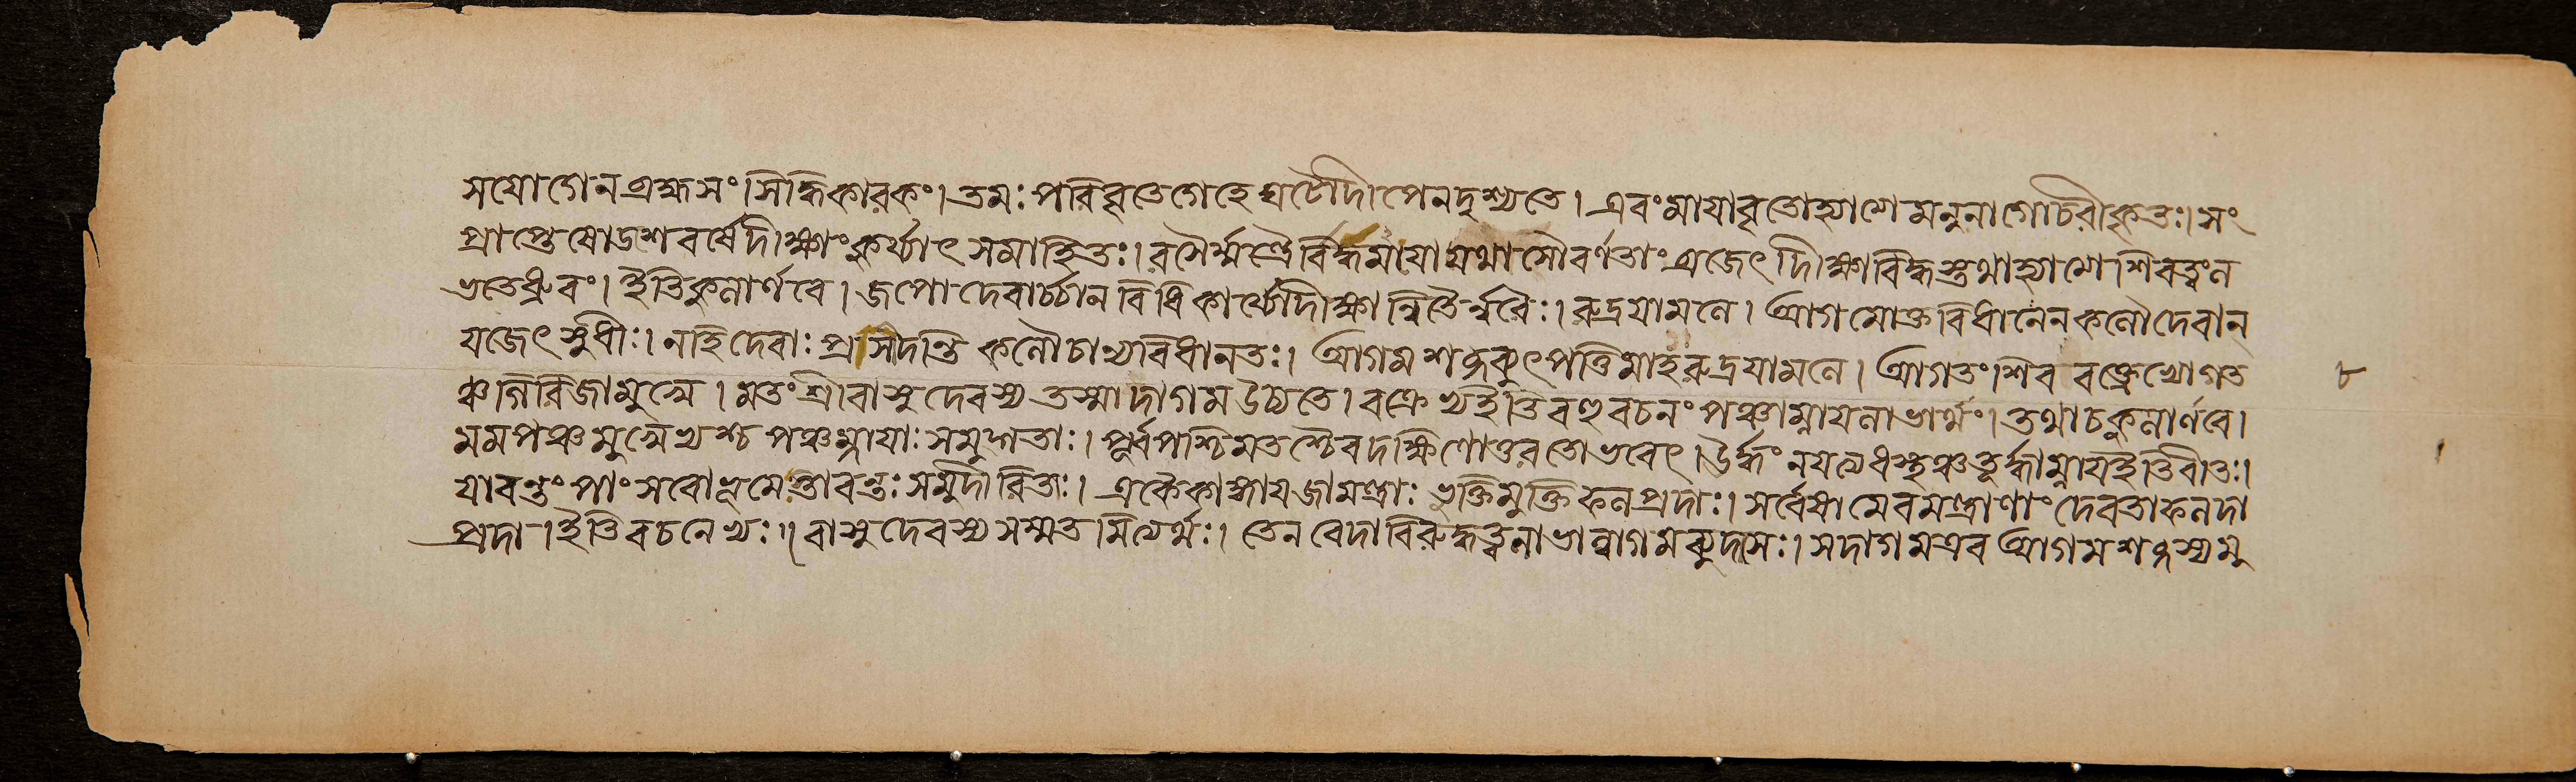 সযোগেন এহ্মসং সিদ্ধিকারকং। তমঃ পরিবৃতে গেহে ঘটো দীপেন দৃশ্যতে। এবং মায়াবৃতো হ্যাত্মা মনুনা গোচরীকৃতঃ। সং
প্রাপ্তে ষোড়শবর্ষে দীক্ষাং কুর্য্যাৎ সমাহিতঃ। রসৈর্ম্মন্ত্রৈর্বিদ্ধমায়া যথা সৌবর্ণতাং ব্রজেৎ দীক্ষাবিদ্ধস্তথা হ্যাত্মা শিবত্বং ন
ভতে ধ্রুবং। ইতি কুলার্ণবে। জপো দেবার্চ্চনবিধি কার্য্যো দীক্ষান্বিতৈর্ন্নরৈঃ। রুদ্রযামলে। আগমোক্তবিধানেন কলৌ দেবান্
যজেৎ সুধীঃ। নহি দেবাঃ প্রসীদন্তি কলৌ চান্যবিধানতঃ। আগমশব্দব্যুৎপত্তিমাহ রুদ্রযামলে। আগতং শিববক্ত্রেভ্যো গত
ঞ্চ গিরিজামুখে। মতং শ্রীবাসুদেবস্য তস্মাদাগম উচ্যতে। বক্ত্রেভ্য ইতি বহুবচনং পঞ্চাম্নায়লাভার্থং। তথাচ কুলার্ণবে।
মম পঞ্চমুখেভ্যশ্চ পঞ্চাম্নায়াঃ সমুদ্গতাঃ। পূর্ব্বপশ্চিমতশ্চৈব দক্ষিণোত্তরতো ভবেৎ। ঊর্দ্ধং নয়ত্যধস্থঞ্চ তূর্দ্ধাম্নায় ইতীরিতঃ।
যাবন্তঃ পাংসবো ভূমেস্তাবন্তঃ সমুদীরিতাঃ। একৈকাম্নায়জা মন্ত্রাঃ ভুক্তিমুক্তিফলপ্রদাঃ। সর্ব্বেষামেব মন্ত্রাণাং দেবতা ফলদা
প্রদা। ইতি বচনেভ্যঃ॥ বাসুদেবস্য সম্মতমিত্যর্থঃ। তেন বেদাবিরুদ্ধত্বলাভান্নাগমব্যুদাসঃ। সদাগম এব আগমশব্দস্য মু
৮